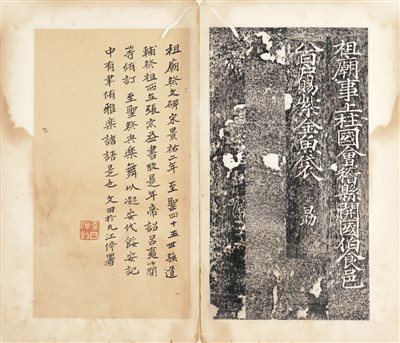 祖廟事上柱國會稽縣開國伯食邑
賜紫金魚袋
祖廟祭文碑宋景祐二年 至聖四十五世孫道
輔祭祖而立張宗益書攷是年帝詔呂夷簡
等脩訂 至聖祭典樂舞以凝安代
中有聿脩雅樂諸語是也 文田於九江